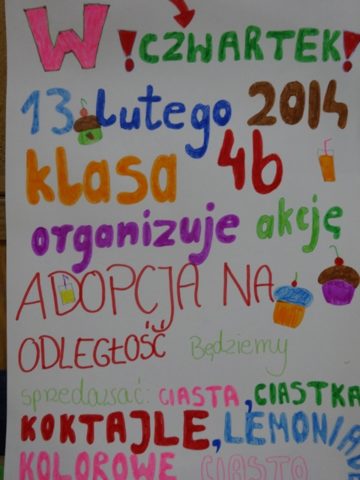 W !CZWARTEK!
13 Lutego 2014
klasa 4b
organizuje akcję
ADOPCJA NA
ODLEGŁOŚĆ Będziemy
sprzedawać: CIASTA, CIASTKA
KOKTAJLE, LEMONIADĘ
KOLOROWE CIASTO